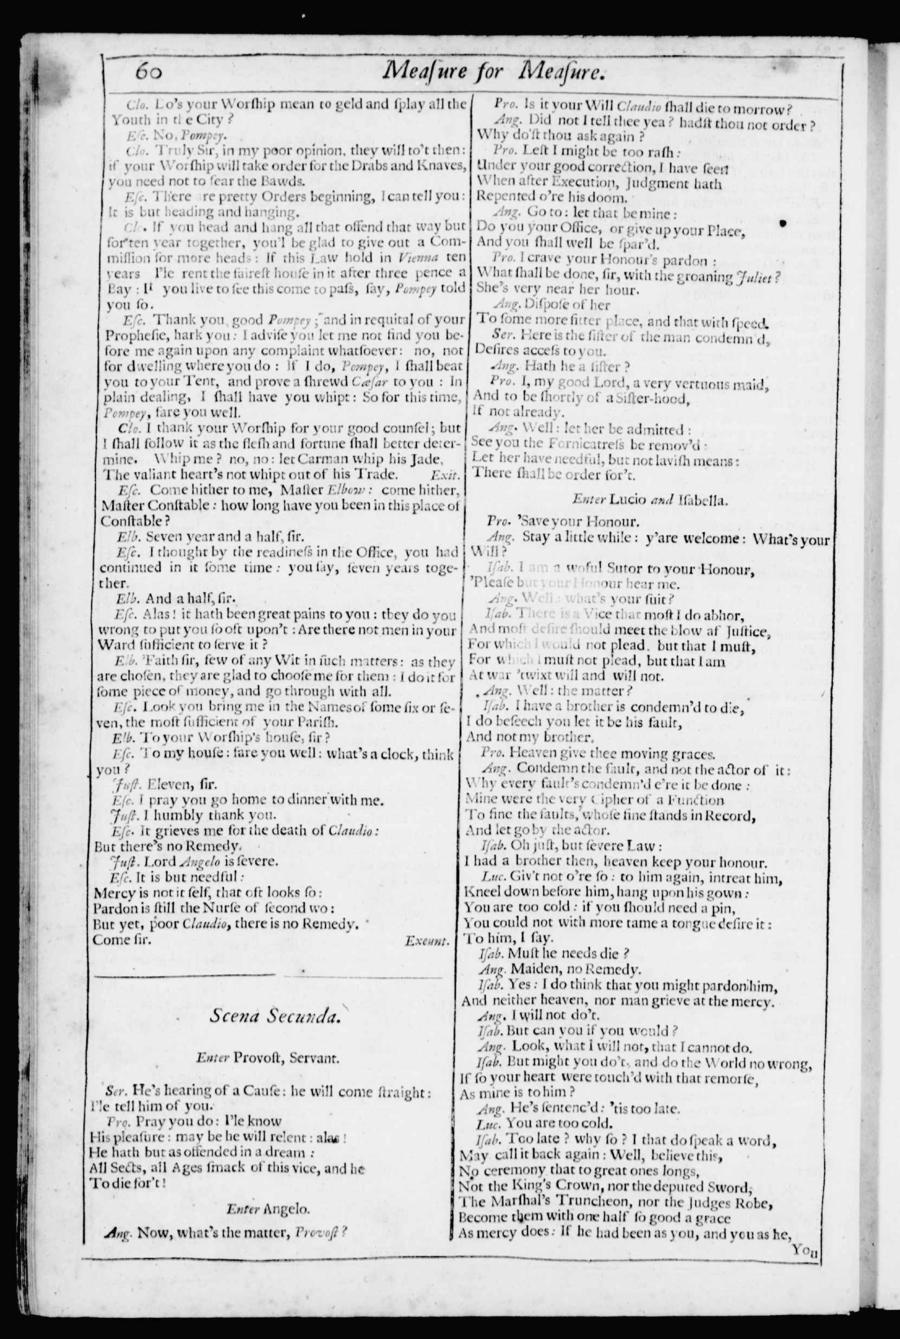 60
Meaſure for Meaſure.
Clo. Do's your Worſhip mean to geld and ſplay all the
Youth in the City ?
Eſc. No, Pompey.
Clo. Truly Sir, in my poor opinion, they will to't then:
if your Worſhip will take order for the Drabs and Knaves,
you need not to fear the Bawds.
Eſc. There re pretty Orders beginning, I can tell you:
It is but heading and hanging.
Cl . If you head and hang all that offend that way but
for ten year together, you'l be glad to give out a Com-
miſſion for more heads : If this Law hold in Vienna ten
years I'le rent the faireſt houſe in it after three pence a
Bay : If you live to ſee this come to paſs, ſay, Pompey told
you ſo.
Eſc. Thank you good Pompey ; and in requital of your
Propheſie, hark you : I adviſe you let me not find you be-
fore me again upon any complaint whatſoever: no, not
for dwelling where you do : If I do, Pompey, I ſhall beat
you to your Tent, and prove a ſhrewd Cæſar to you : In
plain dealing, I ſhall have you whipt : So for this time,
Pompey, fare you well.
Clo. I thank your Worſhip for your good counſel; but
I ſhall follow it as the fleſh and fortune ſhall better deter-
mine. Whip me ? no, no : let Carman whip his Jade,
The valiant heart's not whipt out of his Trade. Exit.
Eſc. Come hither to me, Maſter Elbow : come hither,
Maſter Conſtable : how long have you been in this place of
Conſtable ?
Elb. Seven year and a half, ſir.
Eſc. I thought by the readineſs in the Office, you had
continued in it ſome time : you ſay, ſeven years toge-
ther.
Elb. And a half, ſir.
Eſc. Alas ! it hath been great pains to you : they do you
wrong to put you ſo oft upon't : Are there not men in your
Ward ſufficient to ſerve it ?
Elb. 'Faith ſir, few of any Wit in ſuch matters: as they
are choſen, they are glad to chooſe me for them : I do it for
ſome piece of money, and go through with all.
Eſc. Look you bring me in the Names of ſome ſix or ſe-
ven, the moſt ſufficient of your Pariſh.
Elb. To your Worſhip's houſe, ſir ?
Eſc. To my houſe : fare you well: what's a clock, think
you ?
Juſt. Eleven, ſir.
Eſc. I pray you go home to dinner with me.
Juſt. I humbly thank you.
Eſc. It grieves me for the death of Claudio :
But there's no Remedy.
Juſt. Lord Angelo is ſevere.
Eſc. It is but needful :
Mercy is not it ſelf, that oft looks ſo :
Pardon is ſtill the Nurſe of ſecond wo :
But yet, poor Claudio, there is no Remedy.
Come ſir. Exeunt.
Scena Secunda.
Enter Provoſt, Servant.
Ser. He's hearing of a Cauſe : he will come ſtraight :
I'le tell him of you.
Pro. Pray you do : I'le know
His pleaſure : may be he will relent : alas !
He hath but as offended in a dream :
All Sects, all Ages ſmack of this vice, and he
To die for't !
Enter Angelo.
Ang. Now, what's the matter, Provoſt ?
Pro. Is it your Will Claudio ſhall die to morrow ?
Ang. Did not I tell thee yea ? hadſt thou not order ?
Why do'ſt thou ask again ?
Pro. Leſt I might be too raſh :
Under your good correction, I have ſeen
When after Execution, Judgment hath
Repented o're his doom.
Ang. Go to : let that be mine :
Do you your Office, or give up your Place,
And you ſhall well be ſpar'd.
Pro. I crave your Honour's pardon :
What ſhall be done, ſir, with the groaning Juliet ?
She's very near her hour.
Ang. Diſpoſe of her
To ſome more fitter place, and that with ſpeed.
Ser. Here is the ſiſter of the man condemn'd,
Deſires acceſs to you.
Ang. Hath he a ſiſter ?
Pro. I, my good Lord, a very vertuous maid,
And to be ſhortly of a Siſter-hood,
If not already.
Ang. Well : let her be admitted :
See you the Fornicatreſs be remov'd :
Let her have needful, but not laviſh means :
There ſhall be order for't.
Enter Lucio and Iſabella.
Pro. 'Save your Honour.
Ang. Stay a little while : y'are welcome : What's your
Will ?
Iſab. I am a woful Sutor to your Honour,
'Pleaſe but your Honour hear me.
Ang. Well : what's your ſuit ?
Iſab. There is a Vice that moſt I do abhor,
And moſt deſire ſhould meet the blow af Juſtice,
For which I would not plead, but that I muſt,
For which I muſt not plead, but that I am
At war 'twixt will and will not.
Ang. Well : the matter ?
Iſab. I have a brother is condemn'd to die,
I do beſeech you let it be his fault,
And not my brother.
Pro. Heaven give thee moving graces.
Ang. Condemn the fault, and not the actor of it :
Why every fault's condemn'd e're it be done :
Mine were the very Cipher of a Function
To fine the faults, whoſe fine ſtands in Record,
And let go by the actor.
Iſab. Oh juſt, but ſevere Law :
I had a brother then, heaven keep your honour.
Luc. Giv't not o're ſo : to him again, intreat him,
Kneel down before him, hang upon his gown :
You are too cold : if you ſhould need a pin,
You could not with more tame a tongue deſire it :
To him, I ſay.
Iſab. Muſt he needs die ?
Ang. Maiden, no Remedy.
Iſab. Yes : I do think that you might pardon him,
And neither heaven, nor man grieve at the mercy.
Ang. I will not do't.
Iſab. But can you if you would ?
Ang. Look, what I will not, that I cannot do.
Iſab. But might you do't, and do the World no wrong,
If ſo your heart were touch'd with that remorſe,
As mine is to him ?
Ang. He's ſentenc'd : 'tis too late.
Luc. You are too cold.
Iſab. Too late ? why ſo ? I that do ſpeak a word,
May call it back again : Well, believe this,
No ceremony that to great ones longs,
Not the King's Crown, nor the deputed Sword,
The Marſhal's Truncheon, nor the Judges Robe,
Become them with one half ſo good a grace
As mercy does : If he had been as you, and you as he,
You